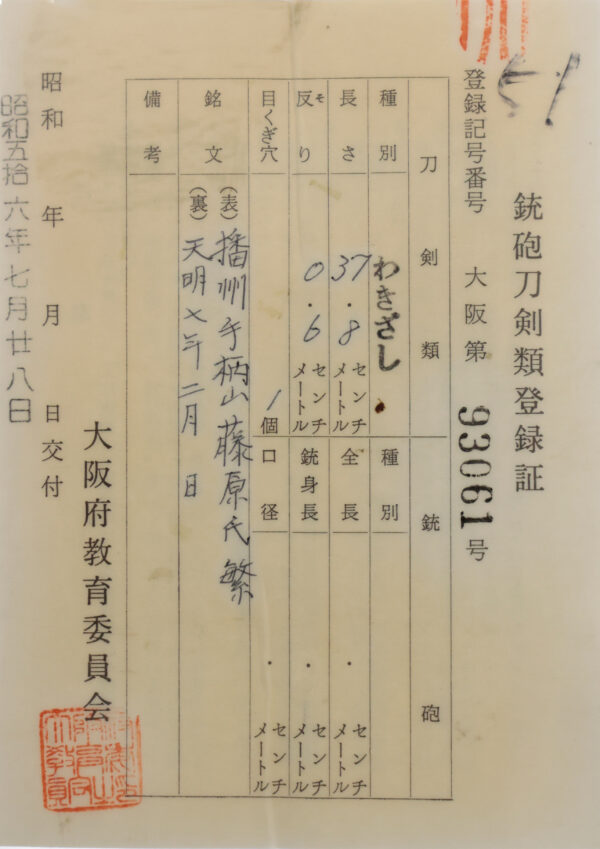 銃砲刀剣類登録証
登録記号番号 大阪第 93061 号
刀剣類 銃砲
種別 わきざし 種別
長さ 37.8 センチメートル 全長 . センチメートル
反り 0.6 センチメートル 銃身長 . センチメートル
そ
目くぎ穴 1個 口径 . センチメートル
銘文 (表) 播州手柄山藤原氏繁
(裏) 天明七年二月 日
備考
大阪府教育委員会
昭和 年 月 日交付
昭和五拾六年七月廿八日